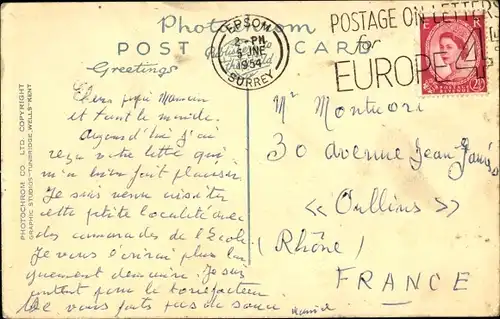 Photochrom
POST CARD
Publishers to the World
EPSOM
2 - PM
5 JNE
1954
SURREY
POSTAGE ON LETTERS
for
EUROPE 4
2½
Greetings
PHOTOCHROM CO LTD. COPYRIGHT
GRAPHIC STUDIOS - TUNBRIDGE WELLS - KENT
Chers papa Maman
et tout le monde.
Aujourd'hui j'ai
reçu votre lettre qui
m'a bien fait plaisir.
Je suis venu visiter
cette petite localité avec
des camarades de l'École
Je vous écrirai plus lon
guement demain. Je suis
content pour le
Ne vous faites pas de souci
Mr
30 avenue Jean Jaurès
<< Oullins >>
(Rhône)
FRANCE